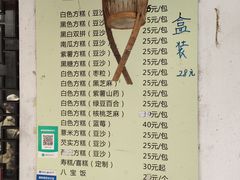 5元/包
白色方糕（豆沙） 25元/包
黑色方糕（豆沙） 25元/包
黑白双拼（豆沙） 25元/包
南瓜方糕（豆沙） 25元/包
紫薯方糕（豆沙） 25元/包
黑糖方糕（豆沙） 25元/包
白色方糕（枣粒） 25元/包
白色方糕（黑芝麻） 25元/包
白色方糕（紫薯山药） 25元/包
白色方糕（绿豆百合） 25元/包
白色方糕（核桃芝麻） 元/包
白色方糕（蓝莓） 40元/包
薏米方糕（豆沙） 25元/包
芡实方糕（豆沙） 25元/包
方糕（豆沙） 25元/包
寿糕/喜糕（定制） 30元起
八宝饭 元/个
盒装
28元